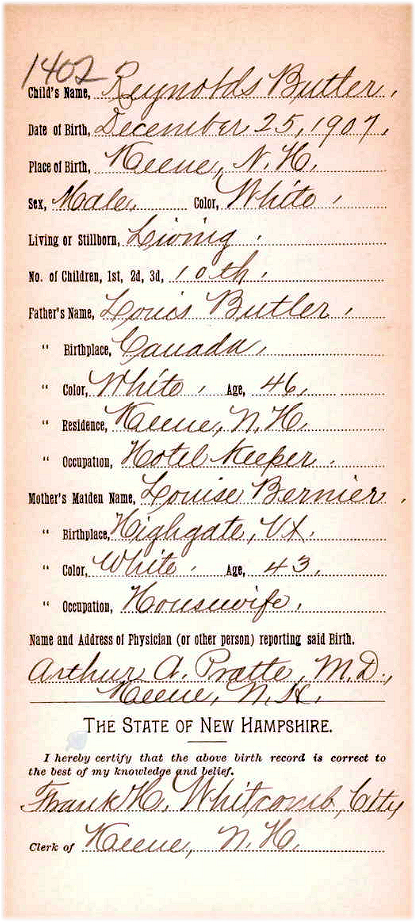 1402
Child's Name, Reynolds Butler.
Date of Birth, December 25, 1907,
Place of Birth, Keene, N. H.
Sex, Male, Color, White,
Living or Stillborn, Living,
No. of Children, 1st, 2d, 3d, 10th,
Father's Name, Louis Butler,
" Birthplace, Canada,
" Color, White, Age, 46,
" Residence, Keene, N. H.
" Occupation, Hotel Keeper.
Mother's Maiden Name, Louise Bernier,
" Birthplace, Highgate, Vt.
" Color, White. Age, 43,
" Occupation, Housewife,
Name and Address of Physician (or other person) reporting said Birth.
Arthur A. Pratte, M.D.,
Keene, N. H.
THE STATE OF NEW HAMPSHIRE.
I hereby certify that the above birth record is correct to
the best of my knowledge and belief.
Frank H. Whitcomb, City
Clerk of Keene, N. H.